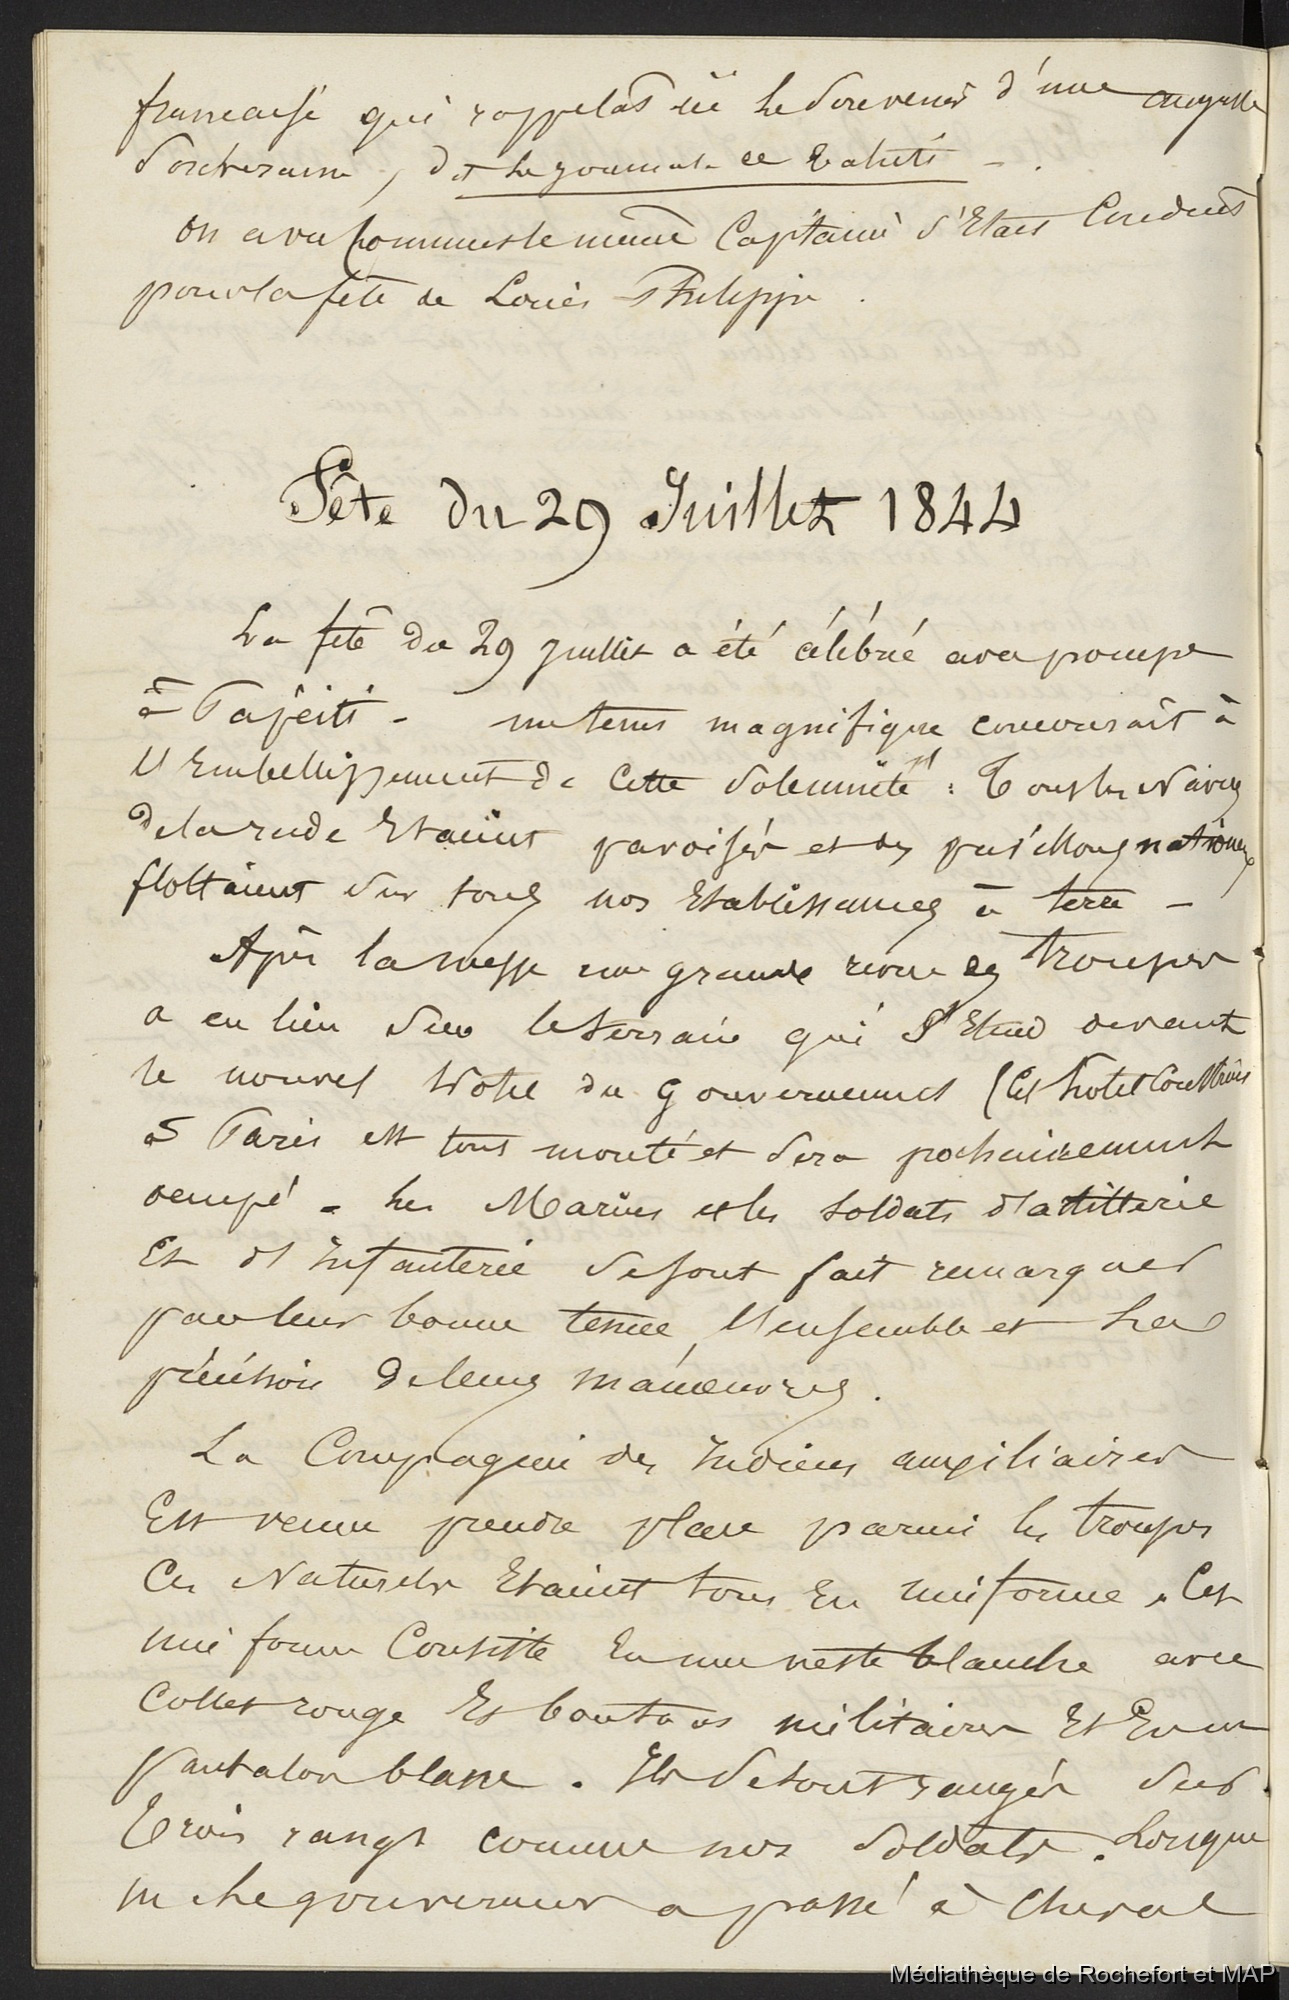 francaise qui rappelat ici le souvenir d'une auguste
souveraine, dit le journal de Tahiti -.
on a vu comment le même Capitaine s'était conduit
pour la fete de Louis Philippe.
Fête du 29 Juillet 1844
La fête du 29 juillet a été célébrée avec pompe
à Papeiti - un tems magnifique concourait à
l'Embellissement de cette solemnité : Tous les Navires
de la rade Etaient pavoisés et des pavillons nationaux
flottaient sur tous nos Etablissemens à terre -
Après la messe une grande revue des troupes
a eu lieu sur le terrain qui s'Etend devant
le nouvel Hotel du Gouvernement (Cet hotel Construit
à Paris est tout monté et sera prochainement
occupé - Les Marins et les soldats d'artillerie
Et d'Infanterie se sont fait remarquer
par leur bonne tenue l'ensemble et La
précision de leurs manœuvres.
La Compagnie des Indiens auxiliaires
Est venue prendre place parmi les troupes
Ces Naturels Etaient tous En uniforme. Cet
uniforme Consiste En une veste blanche avec
collet rouge Et boutons militaires Et En un
pantalon blanc. Ils se sont rangés sur
trois rangs comme nos soldats. Lorsque
m Le gouverneur a passé à Cheval
Médiathèque de Rochefort et MAP